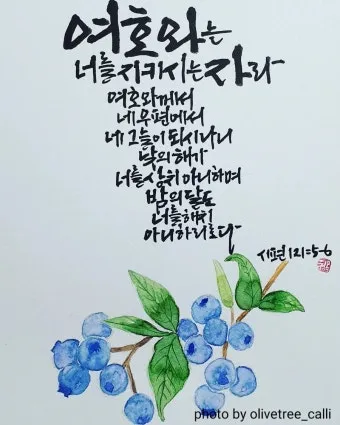 여호와는
너를 지키시는 자라
여호와께서
네 우편에서
네 그늘이 되시나니
낮의 해가
너를 상치 아니하며
밤의 달도
너를 해치
아니하리로다
시편 121:5-6
photo by olivetree_calli